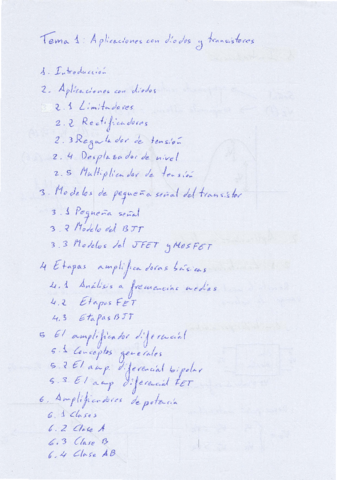 Tema 1: Aplicaciones con diodos y transistores
1. Introducción
2. Aplicaciones con diodos
2.1 Limitadores
2.2 Rectificadores
2.3 Regulador de tensión
2.4. Desplazador de nivel
2.5 Multiplicador de tensión
3. Modelos de pequeña señal del transistor
3.1 Pequeña señal
3.2 Modelo del BJT
3.3 Modelos del JFET y MOSFET
4 Etapas amplificadoras básicas
4.1 Análisis a frecuencias medias
4.2 Etapas FET
4.3 Etapas BJT
5 El amplificador diferencial
5.1 Conceptos generales
5.2 El amp. diferencial bipolar
5.3 El amp diferencial FET
6. Amplificadores de potencia
6.1 Clases
6.2 Clase A
6.3 Clase B
6.4 Clase AB